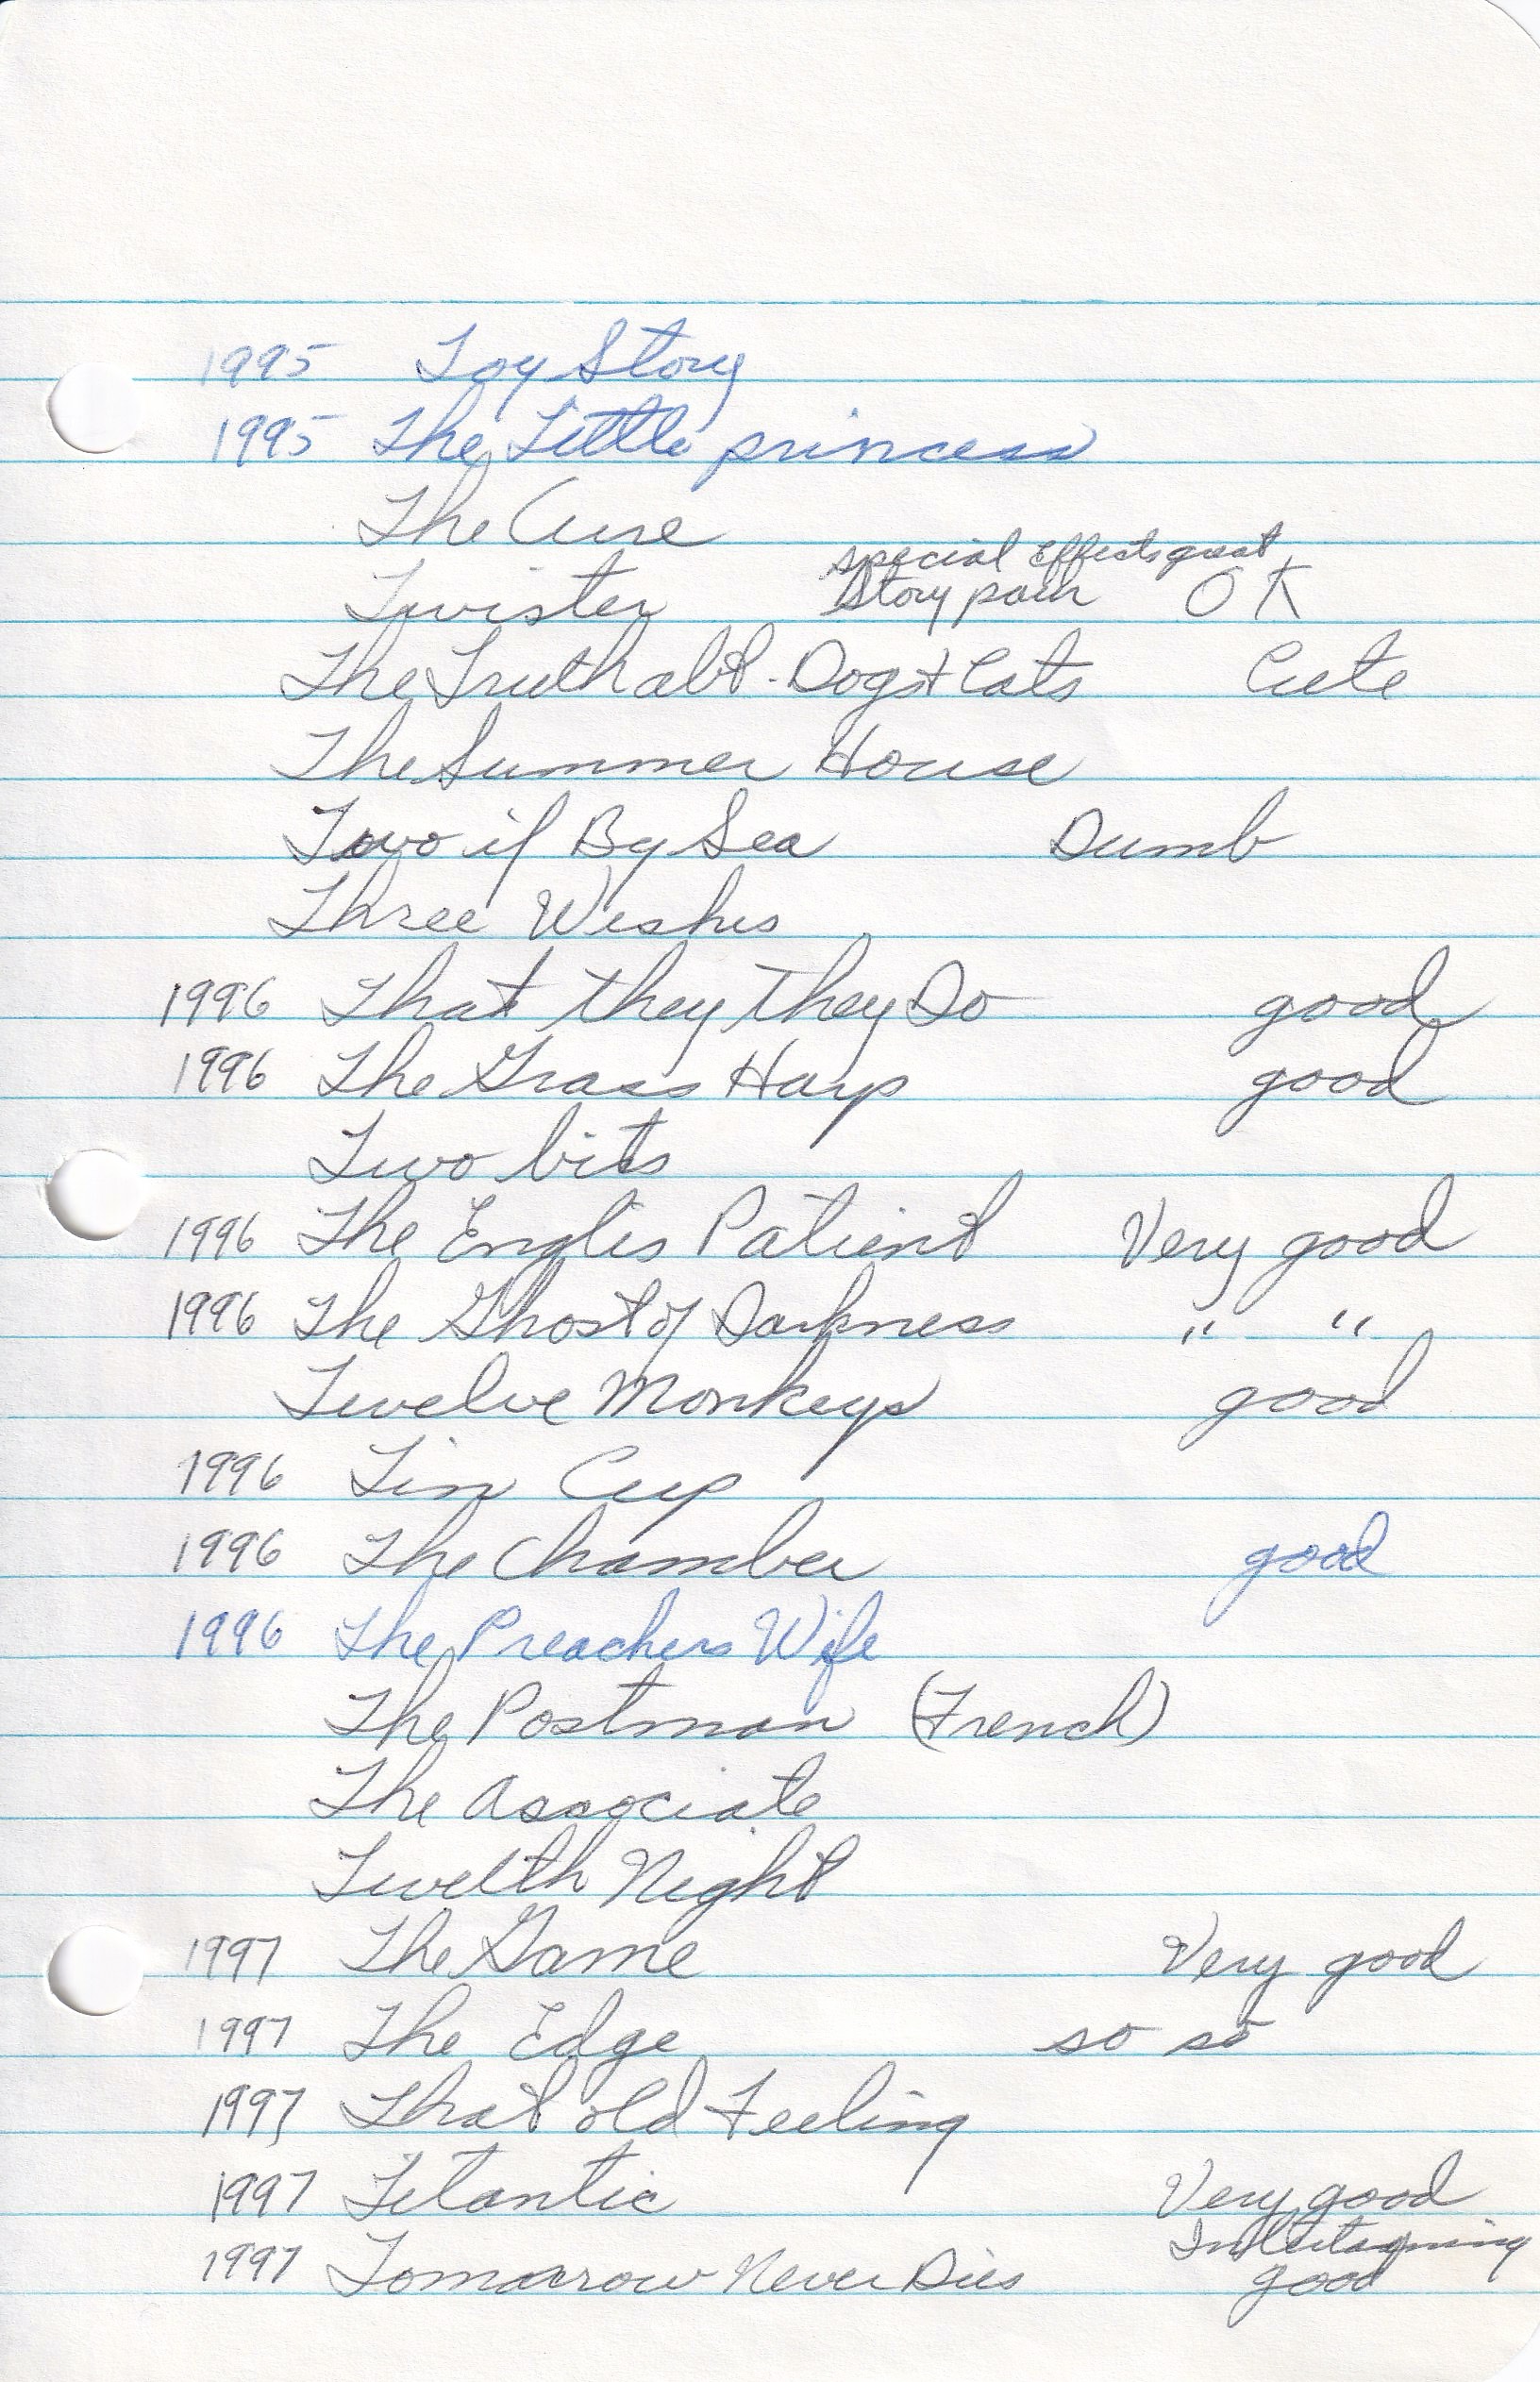 1995 Toy Story
1995 The Little princess
The Cure
special Effects great
Twister Story OK
The Truth abt. Dogs + Cats Cute
The Summer House
Two if By Sea Dumb
Three Wishes
1996 That they they Do good
1996 The Grass Harp good
Two bits
1996 The Englis Patient Very good
1996 The Ghost of Darkness " "
Twelve Monkeys good
1996 Tin Cup
1996 The Chamber good
1996 The Preachers Wife
The Postman (French)
The Associate
Twelth Night
1997 The Game Very good
1997 The Edge so so
1997 That old Feeling
1997 Titantic Very good
1997 Tomorrow Never Dies good